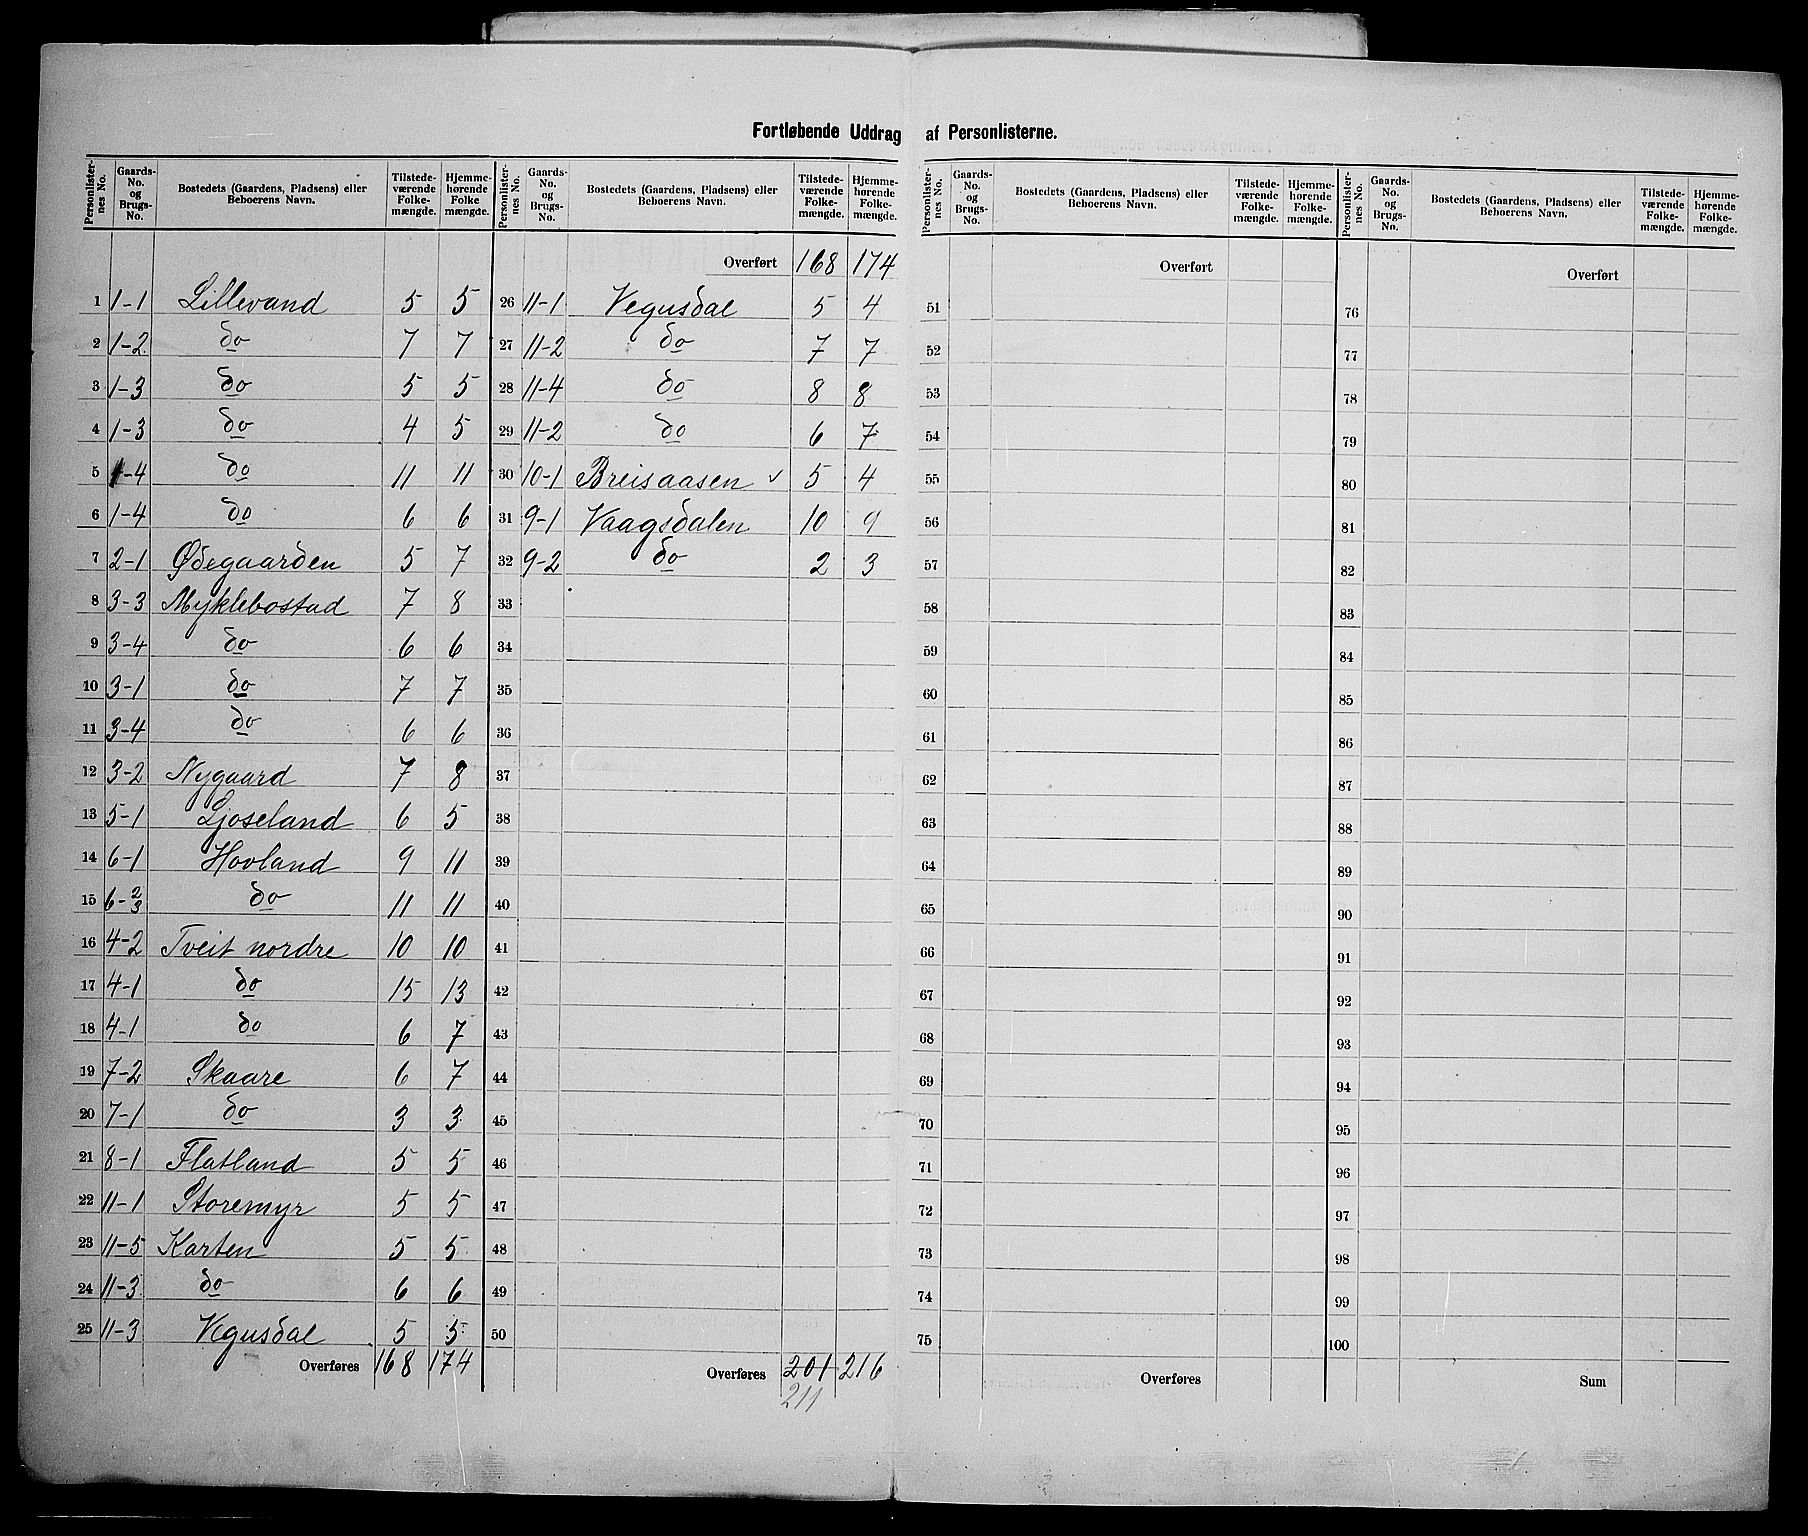 Fortløbende Uddrag af Personlisterne.
Personlister-nes No. | Gaards-No. og Brugs-No. | Bostedets (Gaardens, Pladsens) eller Beboerens Navn. | Tilstede-værende Folke-mængde. | Hjemme-hørende Folke mængde.
1 1-1 Lillevand 5 5
2 1-2 do 7 7
3 1-3 do 5 5
4 1-3 do 4 5
5 1-4 do 11 11
6 1-4 do 6 6
7 2-1 Ødegaarden 5 7
8 3-3 Myklebostad 7 8
9 3-4 do 6 6
10 3-1 do 7 7
11 3-4 do 6 6
12 3-2 Nygaard 7 8
13 5-1 Ljoseland 6 5
14 6-1 Hovland 9 11
15 6-2/3 do 11 11
16 4-2 Tveit nordre 10 10
17 4-1 do 15 13
18 4-1 do 6 7
19 7-2 Skaare 6 7
20 7-1 do 3 3
21 8-1 Flatland 5 5
22 11-1 Storemyr 5 5
23 11-5 Karten 5 5
24 11-3 do 6 6
25 11-3 Vegusdal 5 5
Overføres 168 174
Personlister-nes No. | Gaards-No. og Brugs-No. | Bostedets (Gaardens, Pladsens) eller Beboerens Navn. | Tilstede-værende Folke-mængde. | Hjemme-hørende Folke-mængde.
Overført 168 174
26 11-1 Vegusdal 5 4
27 11-2 do 7 7
28 11-4 do 8 8
29 11-2 do 6 7
30 10-1 Breisaasen ✓ 5 4
31 9-1 Vaagsdalen 10 9
32 9-2 do 2 3
33
34
35
36
37
38
39
40
41
42
43
44
45
46
47
48
49
50
Overføres 201 216
211
Personlister-nes No. | Gaards-No. og Brugs-No. | Bostedets (Gaardens, Pladsens) eller Beboerens Navn. | Tilstede-værende Folke-mængde. | Hjemme-hørende Folke-mængde.
Overført
51
52
53
54
55
56
57
58
59
60
61
62
63
64
65
66
67
68
69
70
71
72
73
74
75
Overføres
Personlister-nes No. | Gaards-No. og Brugs-No. | Bostedets (Gaardens, Pladsens) eller Beboerens Navn. | Tilstede-værende Folke-mængde. | Hjemme-hørende Folke-mængde.
Overført
76
77
78
79
80
81
82
83
84
85
86
87
88
89
90
91
92
93
94
95
96
97
98
99
100
Sum